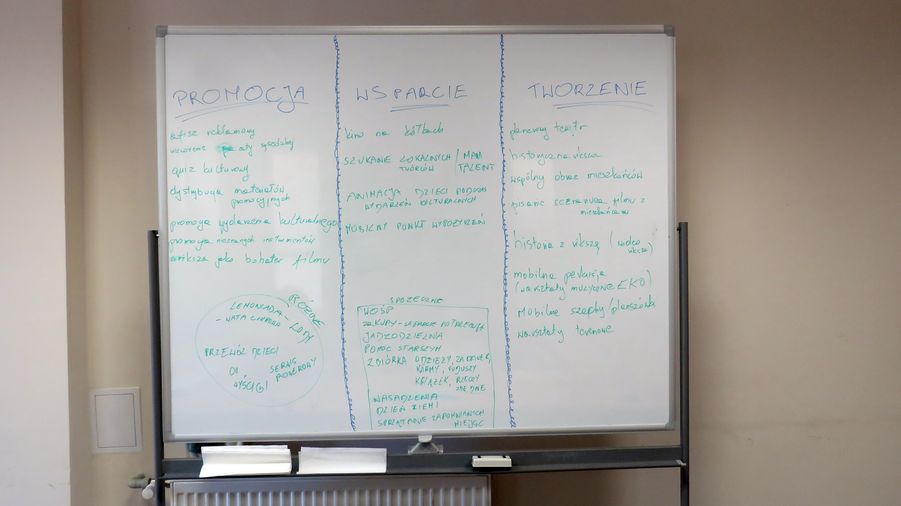 PROMOCJA
afisz reklamowy
quiz kulturowy
dystrybucja materiałów
promocyjnych
promocja wydarzenia kulturalnego
promocja nieznanych instrumentów
wiksza jako bohater filmu
RÓŻOWE
LEMONIADA
LODY
- WATA CUKROWA
PRZEWÓZ DZIECI
SERWIS
ROWEROWY
WYŚCIGI
WSPARCIE
kino na kółkach
SZUKANIE LOKALNYCH / MAM
TWÓRCÓW TALENT
ANIMACJA DZIECI PODCZAS
WYDARZEŃ KULTURALNYCH
MOBILNY PUNKT WYPOŻYCZEŃ
SPOŁECZNE
WOŚP
ZAKUPY - WSPARCIE POTRZEBUJĄ
JADŁODZIELNIA
POMOC STARSZYM
ZBIÓRKA ODZIEŻY, ZABAWEK
KARMY, PODUSZY
KSIĄŻEK, RZECZY
NASADZENIA
DZIEŃ ZIEMI
SPRZĄTANIE ZAPOMNIANYCH
MIEJSC
TWORZENIE
plenerowy teatr
historyczna wiksza
wspólny obraz mieszkańców
pisanie scenariusza filmu z
mieszkańcami
historia z wikszą (wideo
wiksza)
mobilna perkusja
(warsztaty muzyczne EKO)
Mobilne szachy / planszówki
warsztaty